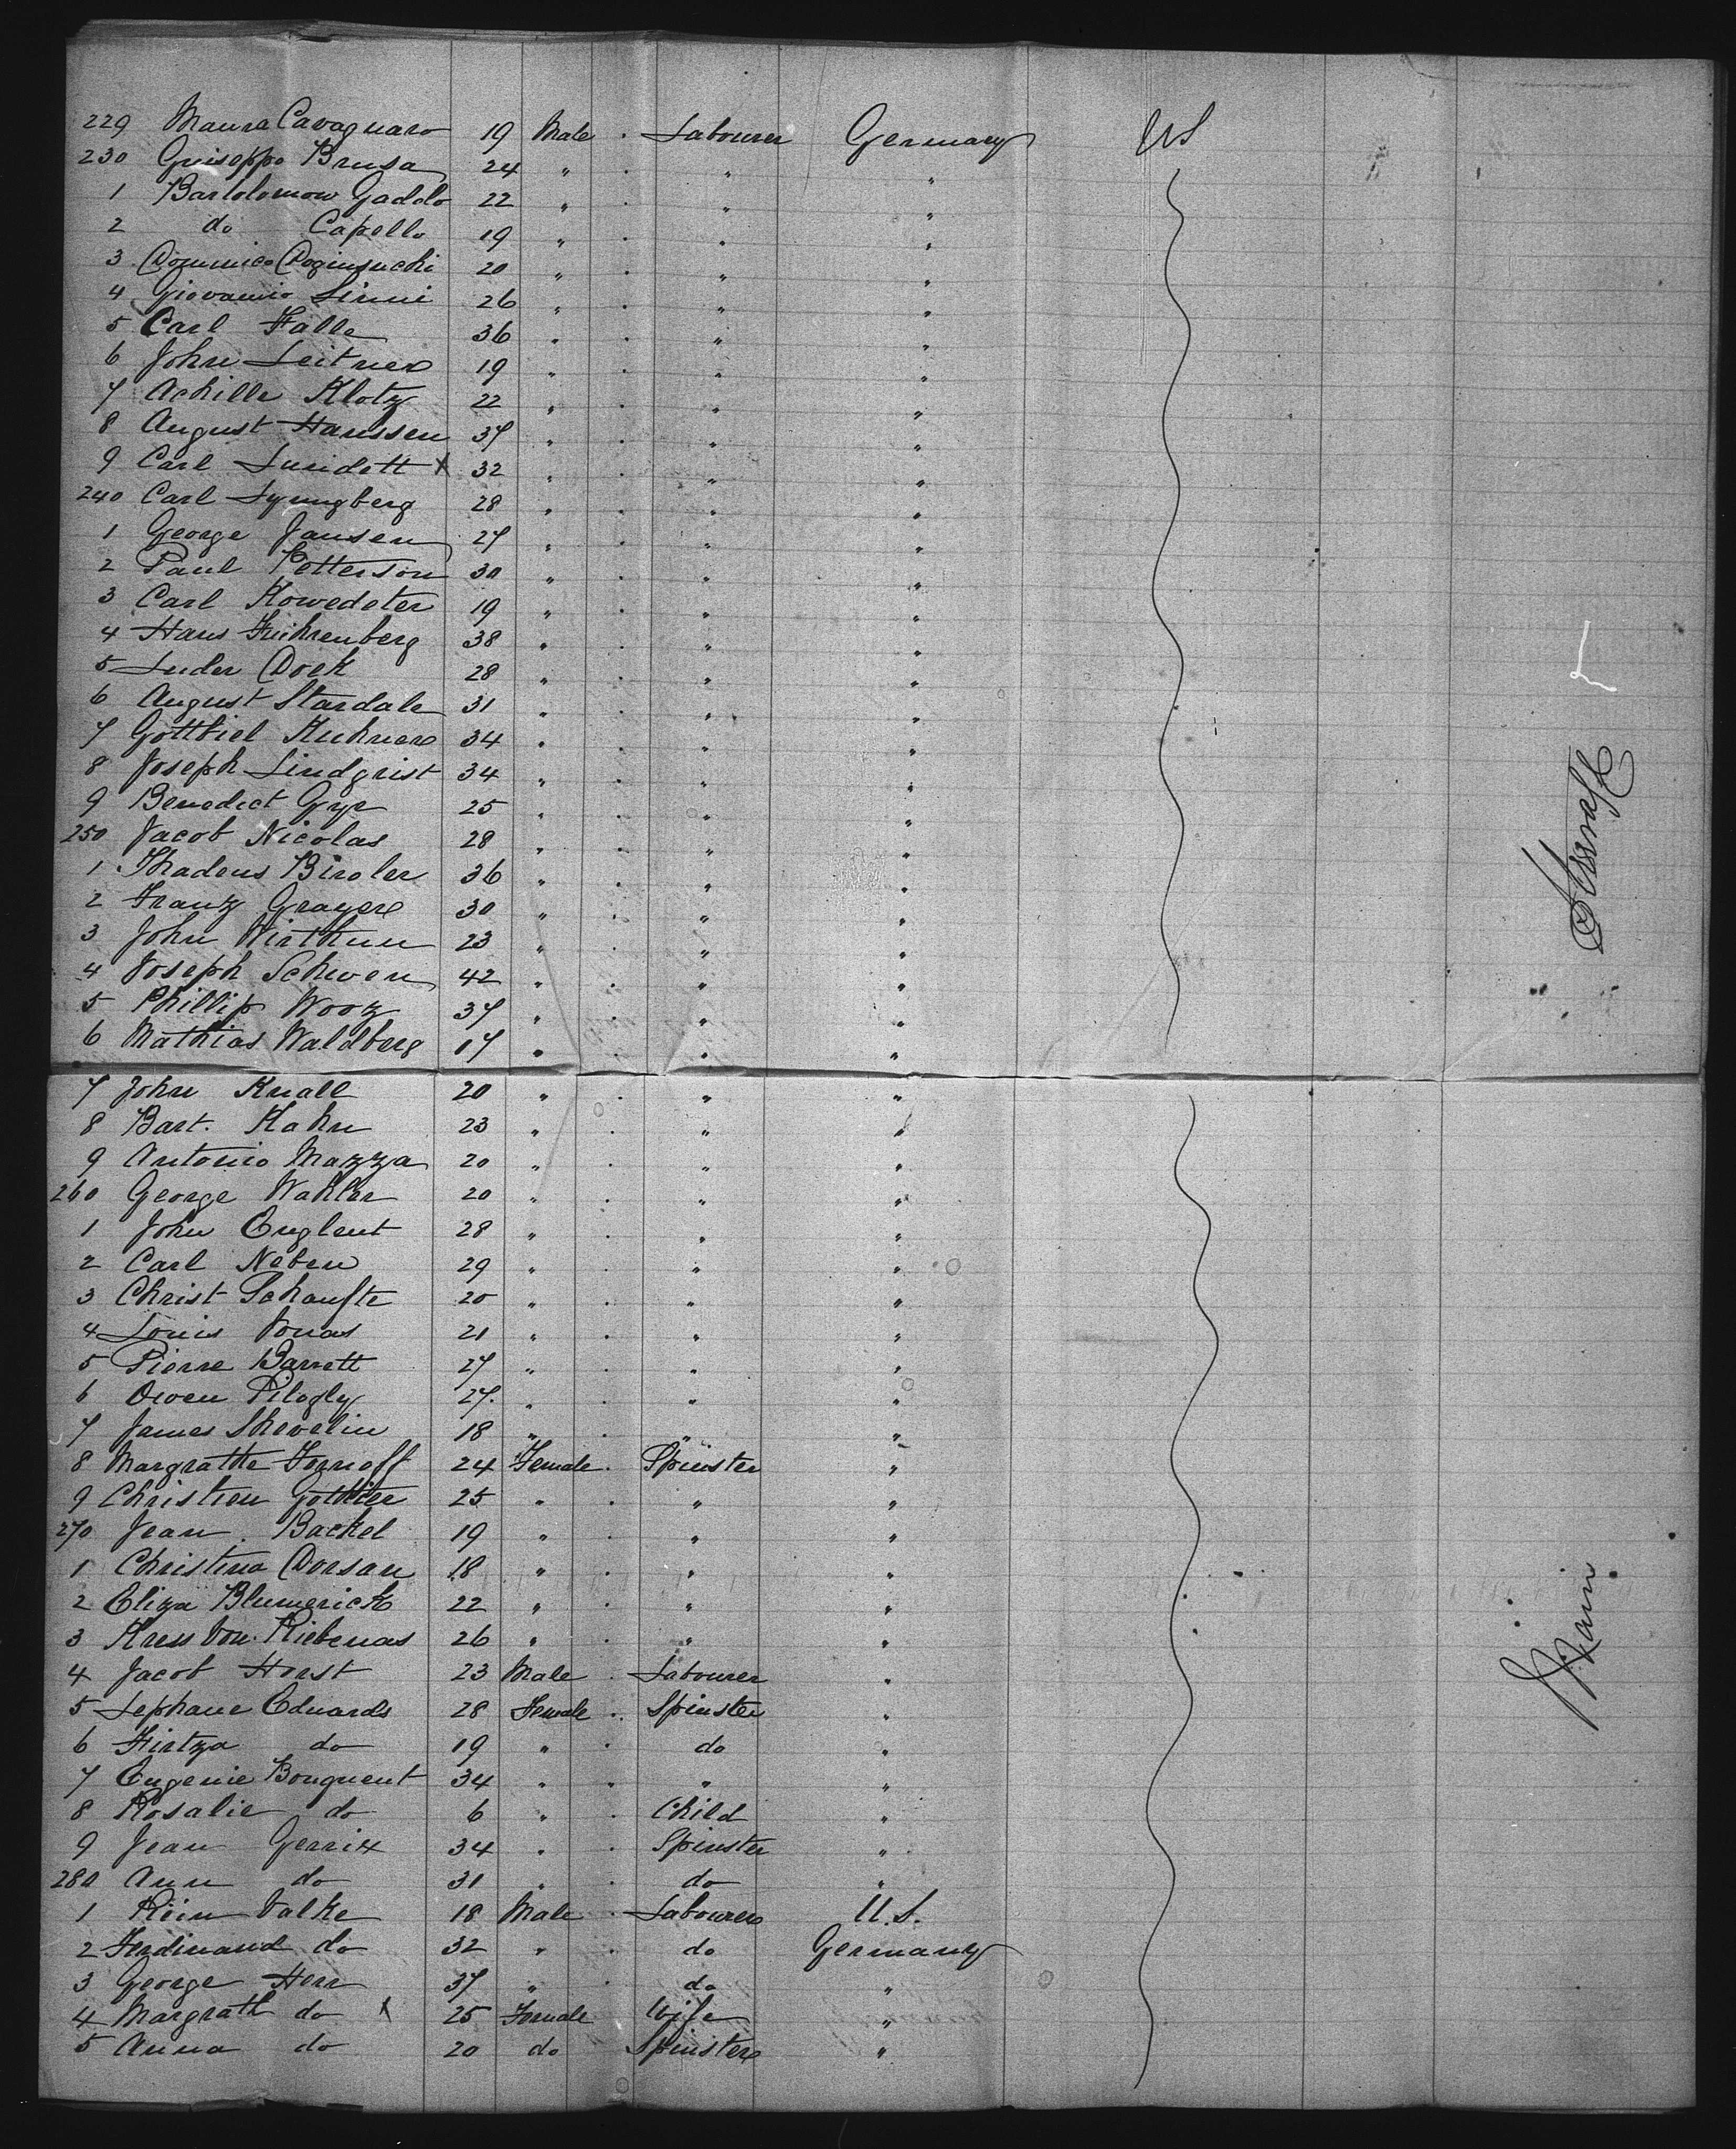 229 Maura Cavagnaro 19 Male . Labourer Germany US
230 Guiseppe Brusa 24 " . " "
1 Bartolomow Gaddo 22 " . " "
2 do Capello 19 " . " "
3 Dominico 20 " . " "
4 Giovannio 26 " . " "
5 Carl Falle 36 " . " "
6 John Leitner 19 " . " "
7 Achille Klotz 22 " . " "
8 August Hanssen 37 " . " "
9 Carl X 32 " . " "
240 Carl Lyungberg 28 " . " "
1 George Jansen 27 " . " "
2 Paul Petterson 30 " . " "
3 Carl Kowedeter 19 " . " "
4 Hans Fuihrenberg 38 " . " "
5 Luder Dock 28 " . " "
6 August Stardale 31 " . " "
7 Gottbiel Kuhner 34 " . " "
8 Joseph Lindgrist 34 " . " "
9 Benedict Gyr 25 " . " "
250 Jacob Nicolas 28 " . " "
1 Thadeus Biroler 36 " . " "
2 Franz Grayer 30 " . " "
3 John Wirthun 23 " . " "
4 Joseph Schwen 42 " . " "
5 Phillip Wooz 37 " . " "
6 Mathias Waldberg 17 " . " "
7 John Knall 20 " . " "
8 Bart. Kahn 23 " . " "
9 Antonio Mazza 20 " . " "
260 George Wahler 20 " . " "
1 John Englent 28 " . " "
2 Carl Neben 29 " . " "
3 Christ Schaufte 20 " . " "
4 Louis Jonas 21 " . " "
5 Pierre Barrett 27 " . " "
6 Owen Pilogly 27. " . " "
7 James Shevelin 18 " . " "
8 Margrathe Fornoff 24 Female . Spinster "
9 Christien Gottier 25 " . " "
270 Jean Backel 19 " . " "
1 Christina Dorsan 18 " . " "
2 Eliza Blumerick 22 " . " "
3 Kress Von Riebenas 26 " . " "
4 Jacob Horst 23 Male . Labourer "
5 Lephane Eduards 28 Female . Spinster "
6 Hirtza do 19 " . do "
7 Eugenie Bouquent 34 " . " "
8 Rosalie do 6 " . Child "
9 Jean Gerrix 34 " . Spinster "
280 Ann do 31 " . do "
1 Rein Valke 18 Male . Labourer U.S.
2 Ferdinand do 32 " . do Germany
3 George Herr 37 " . do "
4 Margrath do X 25 Female Wife "
5 Anna do 20 do Spinster "
Steerage
Main